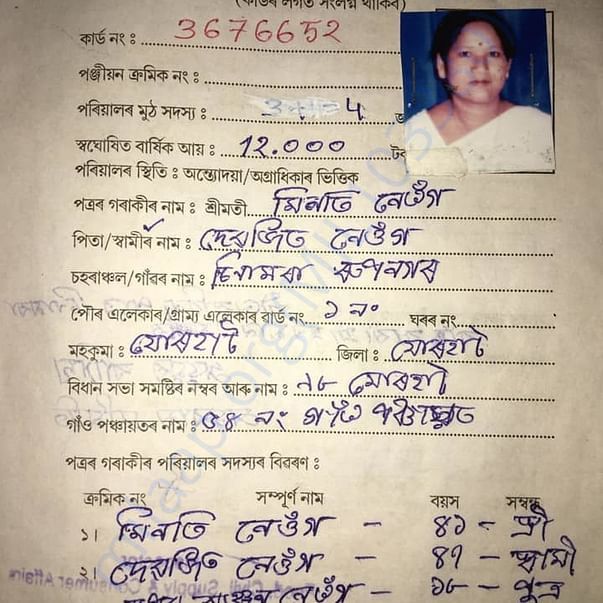 (কাৰ্ডৰ লগত সংলগ্ন থাকিব)
কাৰ্ড নং : 3676652
পঞ্জীয়ন ক্ৰমিক নং :
পৰিয়ালৰ মুঠ সদস্য : 4
স্বঘোষিত বাৰ্ষিক আয় : 12.000 টকা
পৰিয়ালৰ স্থিতি : অন্ত্যোদয়া/অগ্ৰাধিকাৰ ভিত্তিক
পত্ৰৰ গৰাকীৰ নাম : শ্ৰীমতী মিনতি নেওঁগ
পিতা/স্বামীৰ নাম : দেৱজিত নেওঁগ
চহৰাঞ্চল/গাঁৱৰ নাম : চিনামৰা ৰূপনগৰ
পৌৰ এলেকাৰ/গ্ৰাম্য এলেকাৰ ৱাৰ্ড নং ১ নং ঘৰৰ নং
মহকুমা : যোৰহাট জিলা : যোৰহাট
বিধান সভা সমষ্টিৰ নম্বৰ আৰু নাম : যোৰহাট
গাঁও পঞ্চায়তৰ নাম : নং গাওঁ পঞ্চায়ত
পত্ৰৰ গৰাকীৰ পৰিয়ালৰ সদস্যৰ বিৱৰণ :
ক্ৰমিক নং সম্পূৰ্ণ নাম বয়স সম্বন্ধ
১। মিনতি নেওঁগ – ৪১ – স্ত্ৰী
২। দেৱজিত নেওঁগ – ৪৭ – স্বামী
নেওঁগ – ১৮ – পুত্ৰ